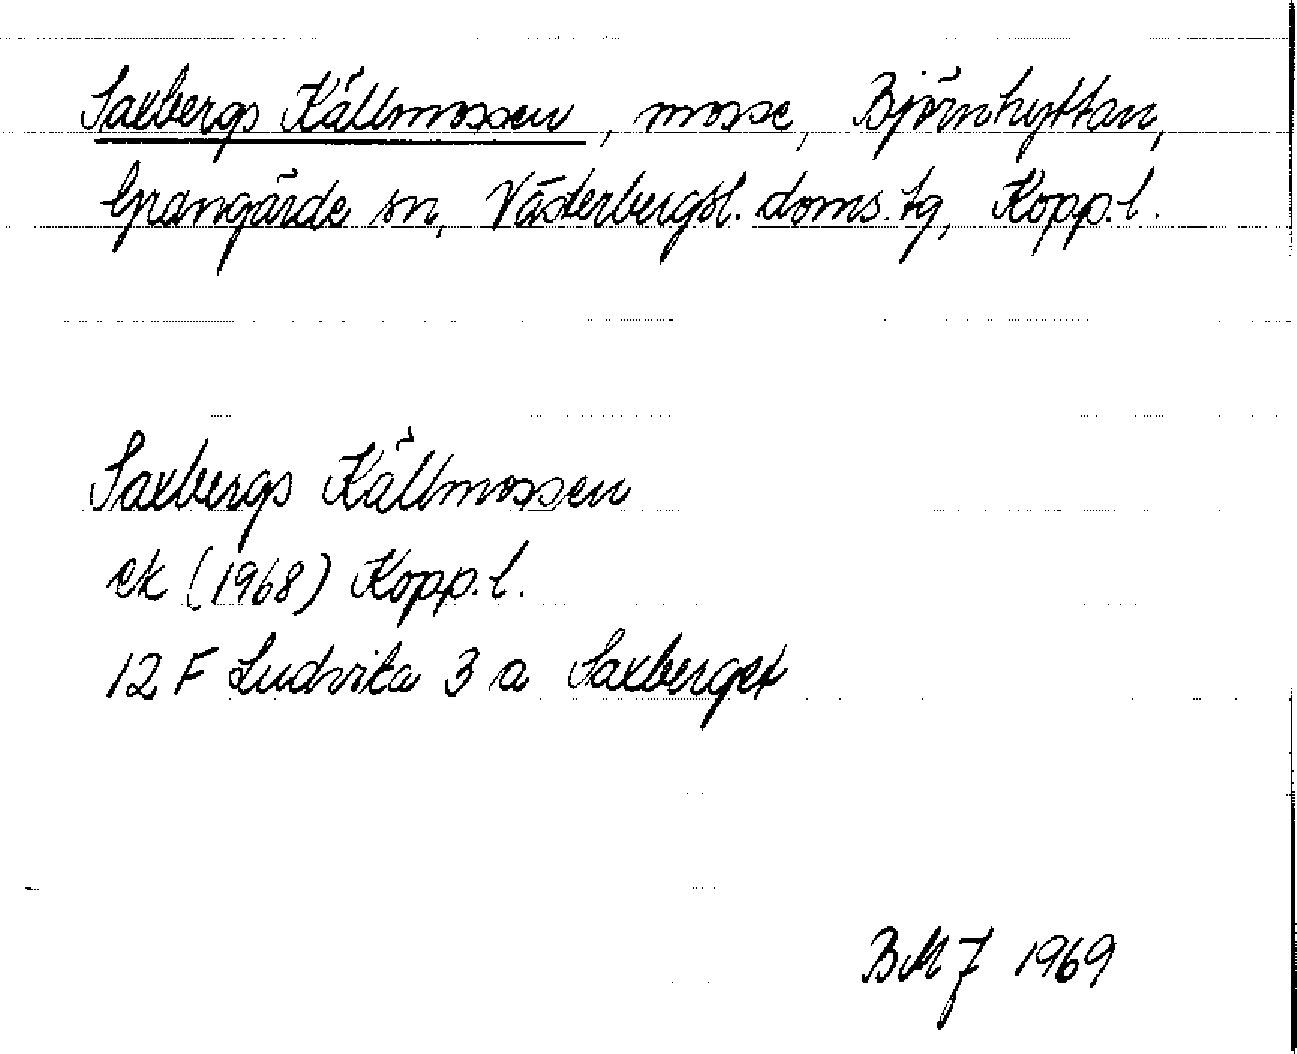 Saxbergs Källmossen, mosse, Björnhyttan,
Grangärde sn, Västerbergsl. doms. tg, Kopp. l.
Saxbergs Källmossen
ek (1968) Kopp. l.
12 F Ludvika 3 a Saxberget
BMJ 1969